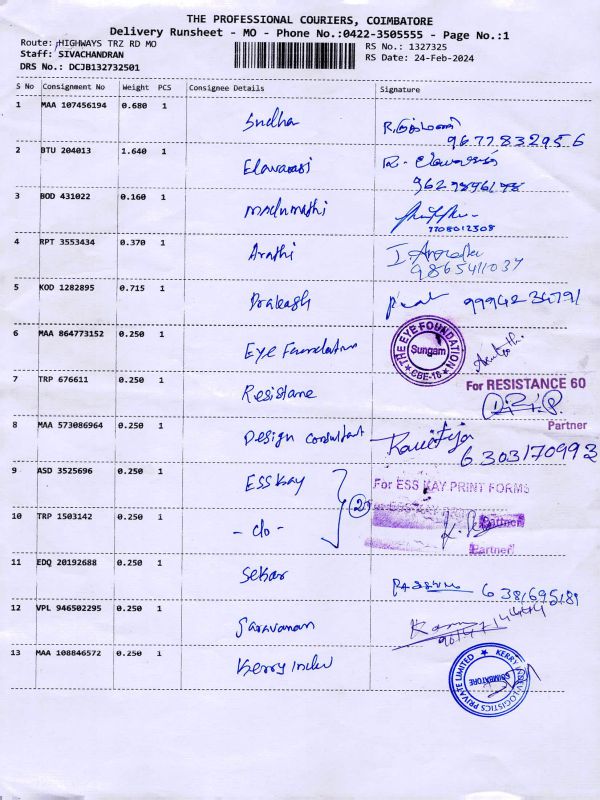 THE PROFESSIONAL COURIERS, COIMBATORE
Delivery Runsheet - MO - Phone No.:0422-3505555 - Page No.:1
Route: HIGHWAYS TRZ RD MO
Staff: SIVACHANDRAN
DRS No.: DCJB132732501
RS No.: 1327325
RS Date: 24-Feb-2024
S No Consignment No Weight PCS Consignee Details Signature
1 MAA 107456194 0.680 1 Sudha
9677832956
2 BTU 204013 1.640 1 Elavarasi
3 BOD 431022 0.160 1 Madhumathi
7708012308
4 RPT 3553434 0.370 1 Arathi
9865411037
5 KOD 1282895 0.715 1 Prakash 9994234791
6 MAA 864773152 0.250 1 Eye Foundation THE EYE FOUNDATION Sungam CBE-18
7 TRP 676611 0.250 1 Resistane For RESISTANCE 60
Partner
8 MAA 573086964 0.250 1 Design consultant
6303170993
9 ASD 3525696 0.250 1 ESSKAY For ESS KAY PRINT FORMS
10 TRP 1503142 0.250 1 - do - 2 Partner
Partner
11 EDQ 20192688 0.250 1 Sekar
12 VPL 946502295 0.250 1 Saravanan
13 MAA 108846572 0.250 1 Kerry Indev KERRY INDEV LOGISTICS PRIVATE LIMITED COIMBATORE